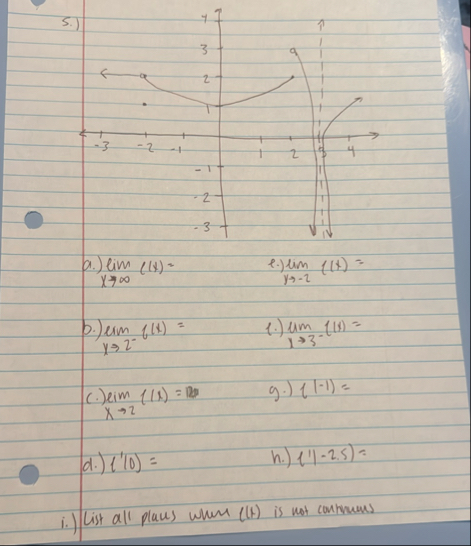 5.)
4
3
2
1
-3 -2 -1 1 2 3 4
-1
-2
-3
a.) lim f(x) =
x→∞
e.) lim f(x) =
x→-2
b.) lim f(x) =
x→2⁻
f.) lim f(x) =
x→3⁻
c.) lim f(x) =
x→2
g.) f(-1) =
d.) f'(0) =
h.) f'(-2.5) =
i.) List all places where f(x) is not continuous